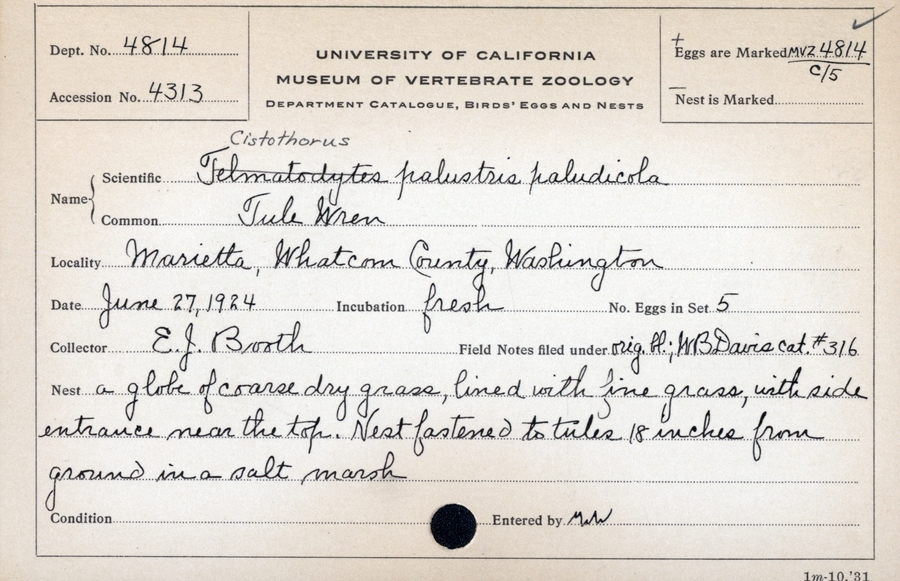 Dept. No. 4814
Accession No. 4313
UNIVERSITY OF CALIFORNIA
MUSEUM OF VERTEBRATE ZOOLOGY
DEPARTMENT CATALOGUE, BIRDS' EGGS AND NESTS
+
Eggs are Marked MVZ 4814
c/5
—
Nest is Marked
Cistothorus
Name Scientific Telmatodytes palustris paludicola
Common Tule Wren
Locality Marietta, Whatcom County, Washington
Date June 27, 1924 Incubation fresh No. Eggs in Set 5
Collector E.J. Booth Field Notes filed under orig. ; WB Davis cat. #316
Nest a globe of coarse dry grass, lined with fine grass, with side
entrance near the top. Nest fastened to tules 18 inches from
ground in a salt marsh
Condition Entered by
1m-10,'31